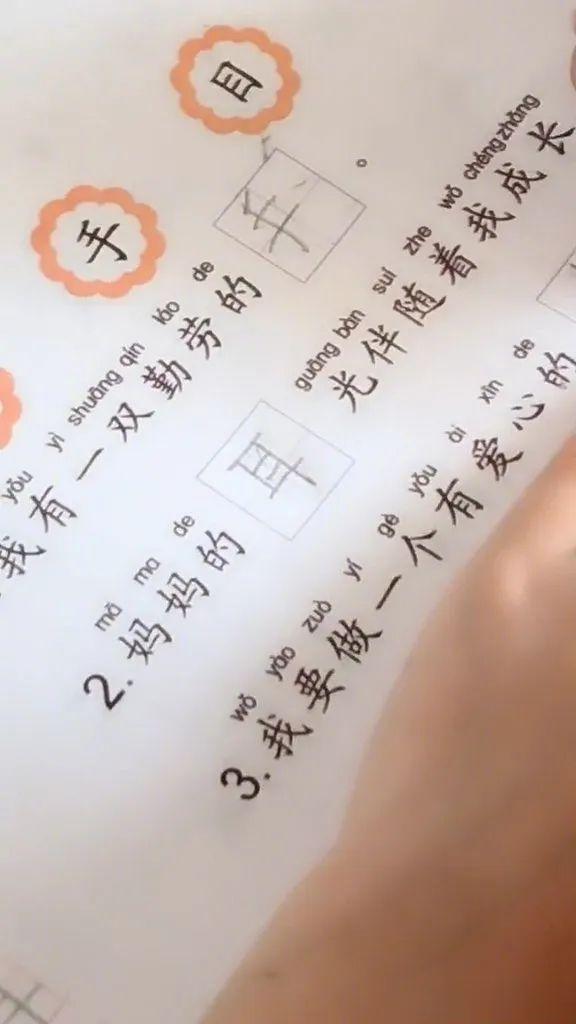 手 目
yǒu yì shuāng qín láo de
我有一双勤劳的手。
mā ma de guāng bàn suí zhe wǒ chéng zhǎng
2. 妈妈的耳光伴随着我成长
wǒ yào zuò yí gè yǒu ài xīn de
3. 我要做一个有爱心的